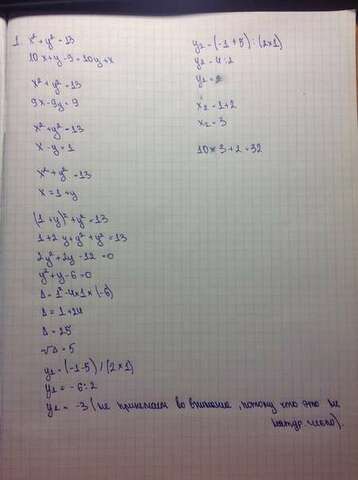 1. x² + y² = 13
10x + y - 9 = 10y + x
x² + y² = 13
9x - 9y = 9
x² + y² = 13
x - y = 1
x² + y² = 13
x = 1 + y
(1 + y)² + y² = 13
1 + 2y + y² + y² = 13
2y² + 2y - 12 = 0
y² + y - 6 = 0
Δ = 1² - 4x1x(-6)
Δ = 1 + 24
Δ = 25
√Δ = 5
y₁ = (-1-5) / (2x1)
y₁ = -6:2
y₁ = -3 (не принимаем во внимание, потому что это не
натур. число).
y₂ = (-1 + 5) : (2x1)
y₂ = 4:2
y₂ = 2
x₂ = 1+2
x₂ = 3
10x3 + 2 = 32